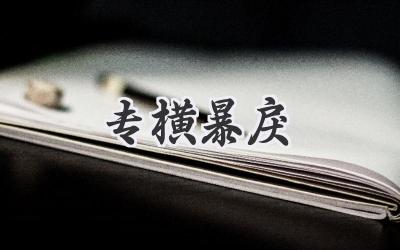 专横暴戾